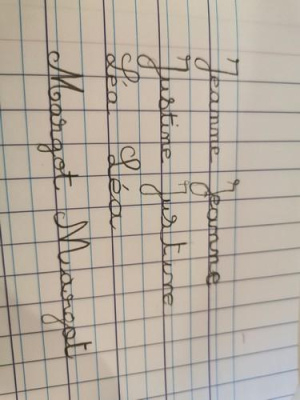 Jeanne Jeanne
Justine Justine
Léa Léa
Margot Margot